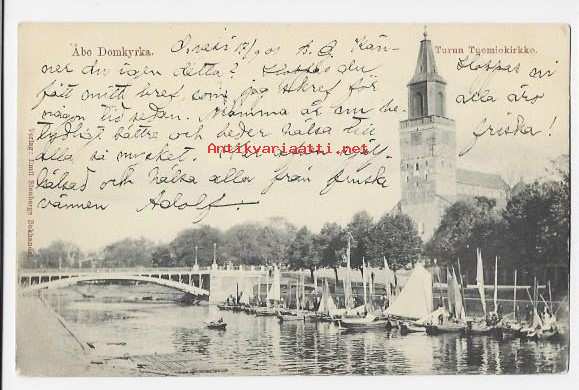 Åbo Domkyrka.
Turun Tuomiokirkko.
17/9 01 B. G. Kän-
ner du igen detta? Hoppas du
fått mitt bref, som jag skref för
någon tid sedan. Mamma är om be-
tydligt bättre och beder hälsa till
alla så mycket.
hälsad och hälsa alla från finska
vännen Adolf.
Hoppas ni
alla äro
friska!
Antikvariaatti.net
Verlag Emil Rosbergs Bokhandel